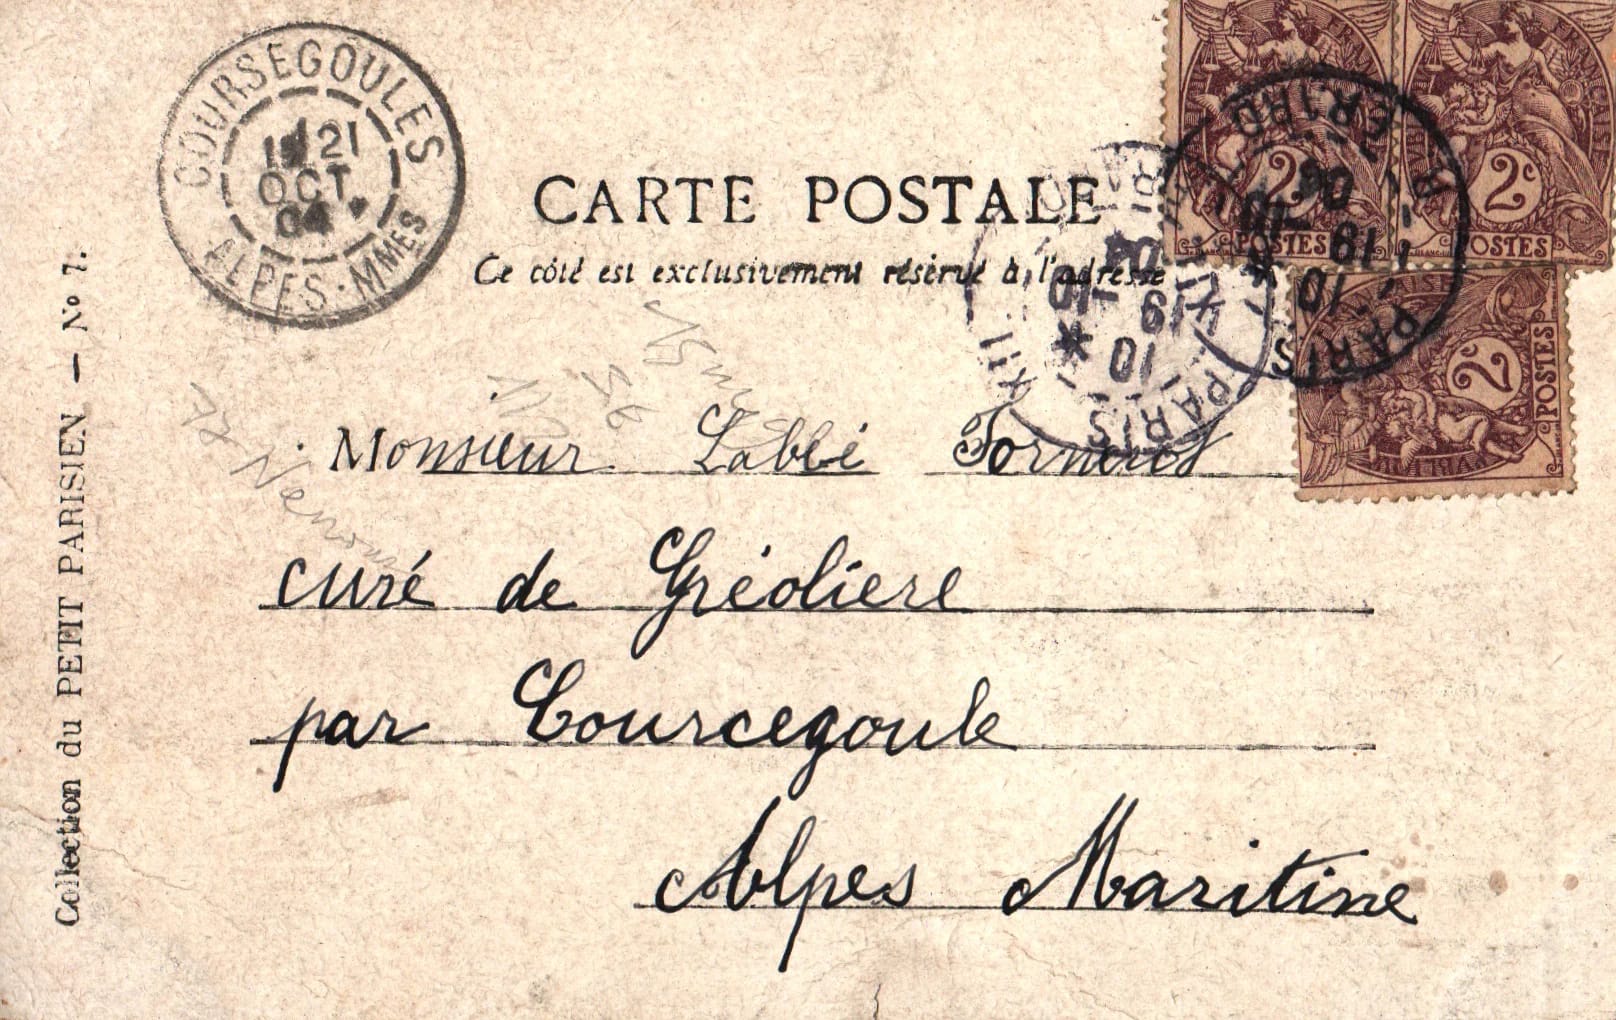 COURSEGOULES
1E/21
OCT.
04
ALPES-MMES
CARTE POSTALE
Ce côté est exclusivement réservé à l'adresse
2c
POSTES
2c
POSTES
2c
POSTES
PARIS
10
19
04
PARIS XII
10
19 -10
04
Monsieur Labbé
curé de Gréoliere
par Courcegoule
Alpes Maritine
Collection du PETIT PARISIEN — No 7.